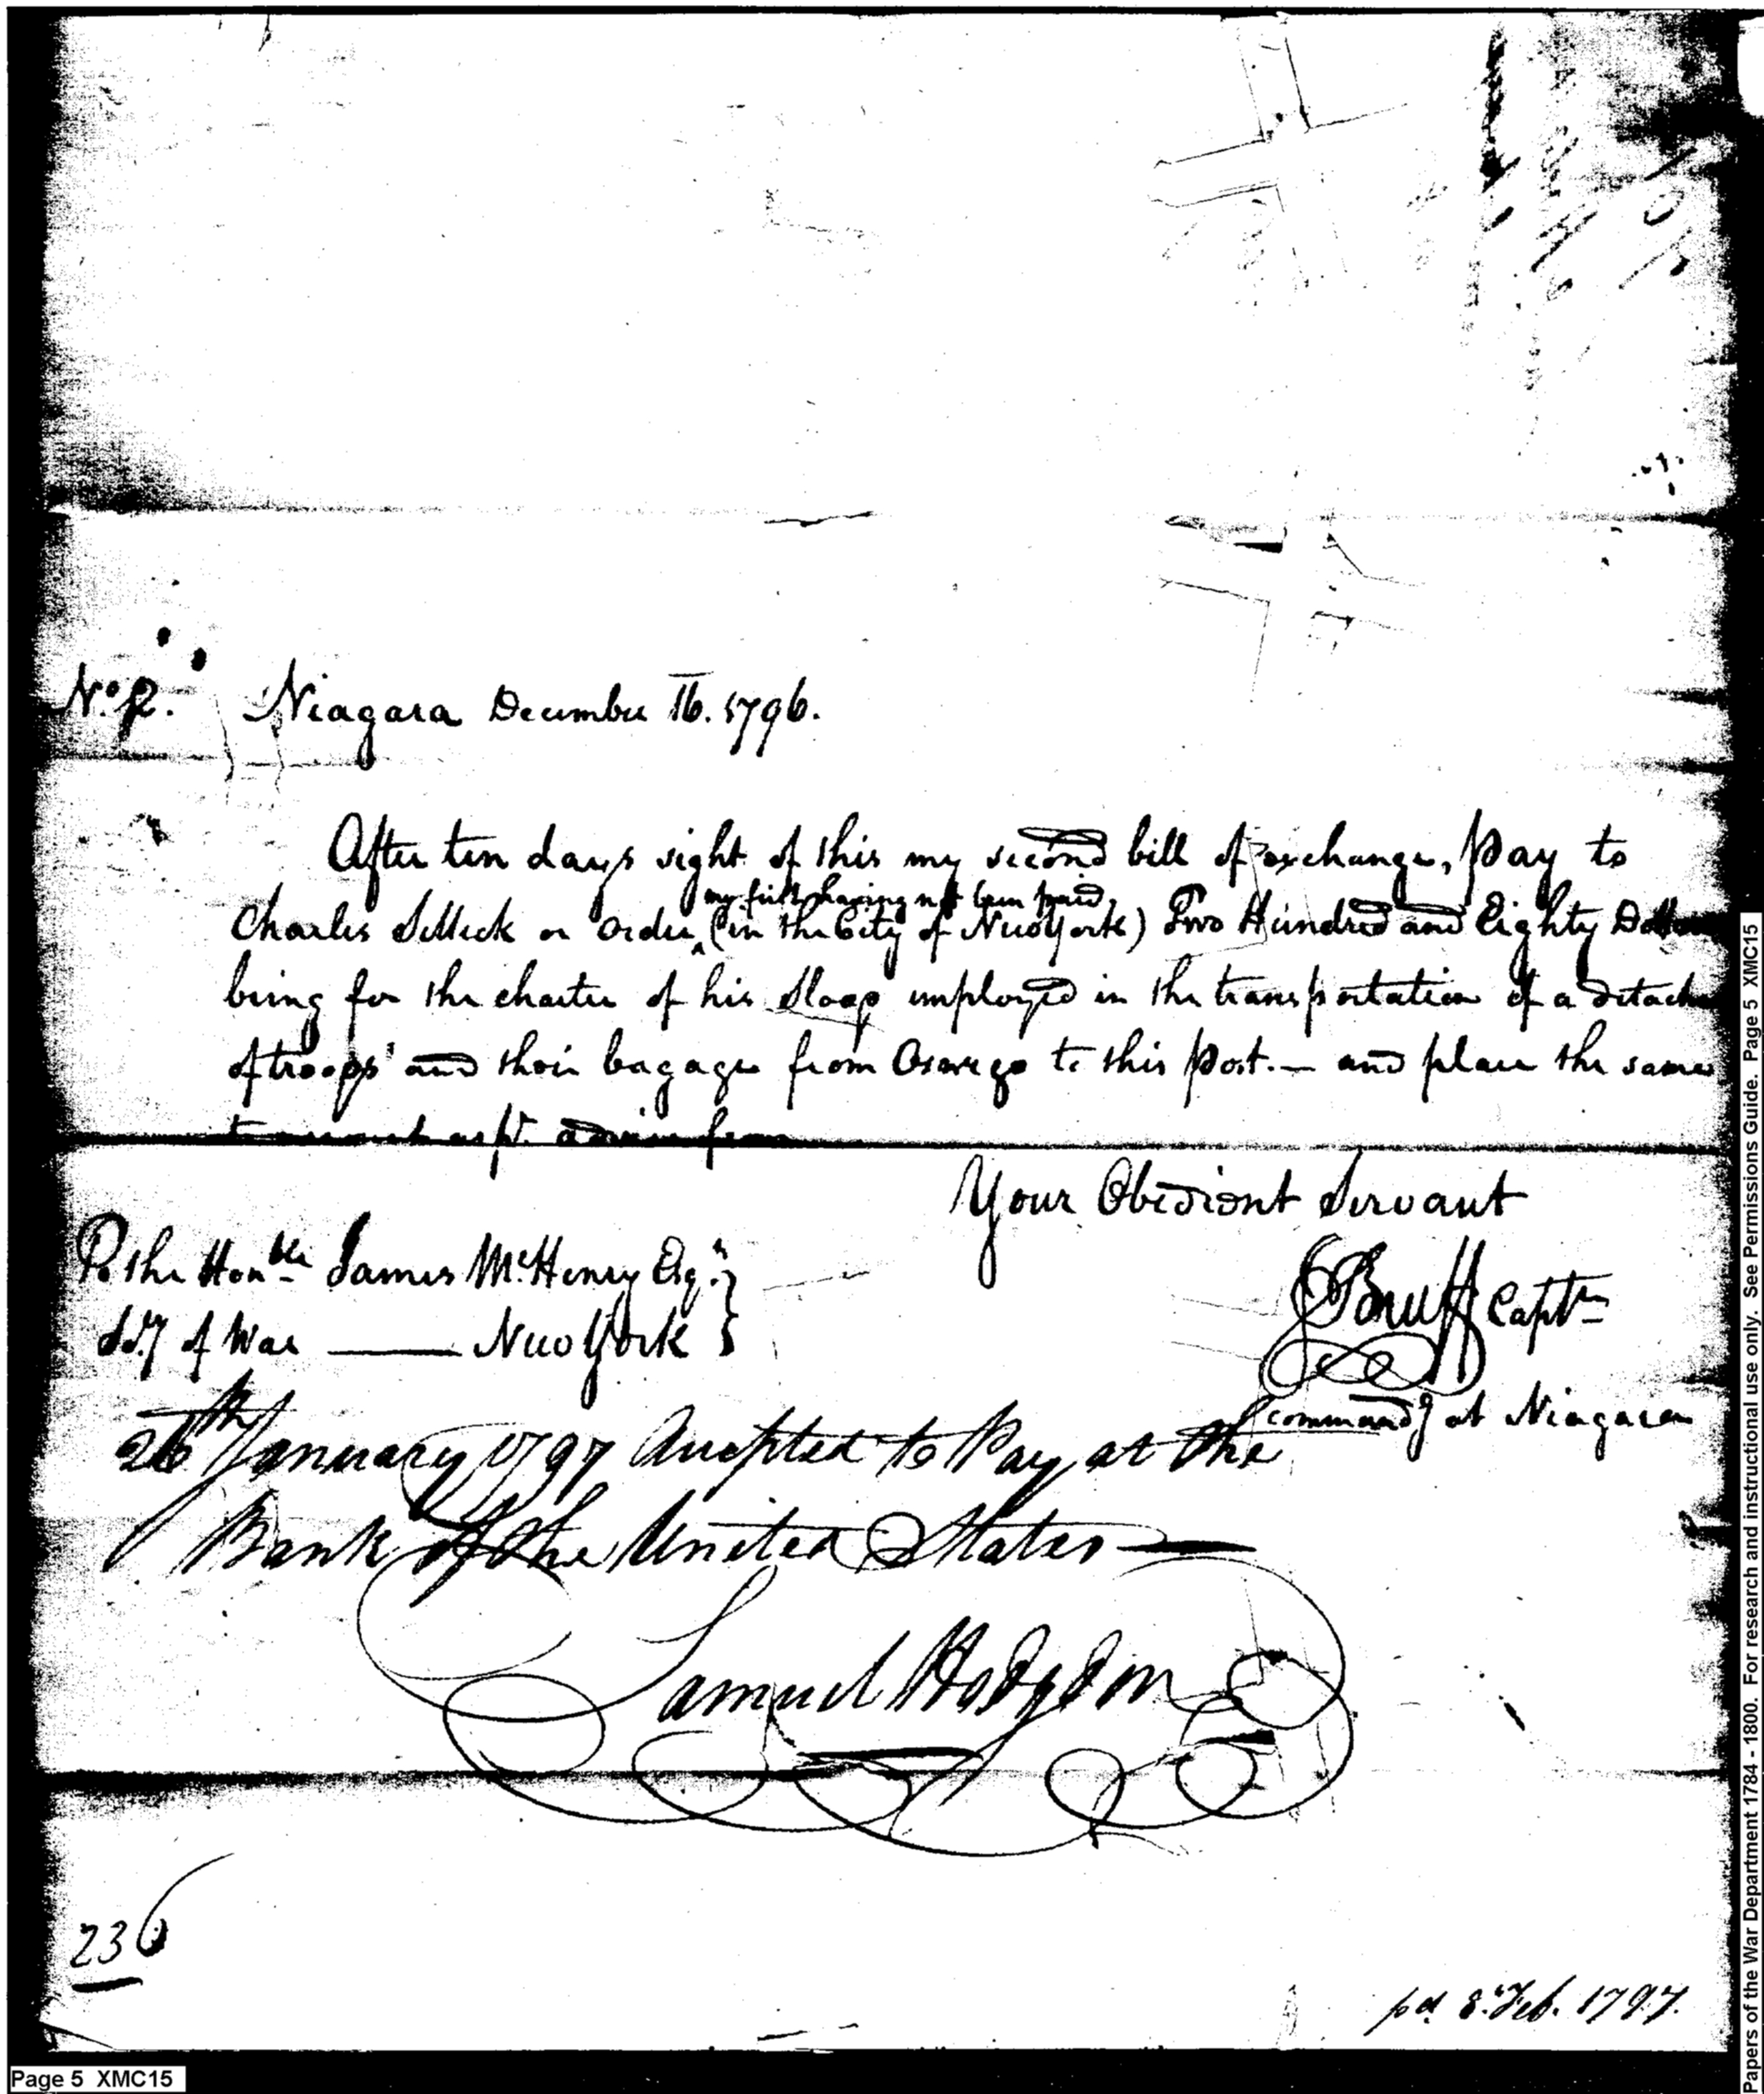 No. 2. Niagara December 16. 1796.
After ten days sight of this my second bill of exchange, Pay to
my first having not been paid,
Charles Selleck or order, (in the City of New York) Two Hundred and Eighty Dollars
being for the charter of his Sloop employed in the transportation of a detach
of troops and their bagage from Oswego to this Post. — and place the same
to account as pr. advice from
Your Obedient Servant
To the Honble James McHenry Esqr.
Secy of War — New York
J Bruff Captn
commandg at Niagara
26th January 1797 Accepted to Pay at the
Bank of the United States —
Samuel Hodgdon
236
pd. 8. Feb. 1797.
Page 5 XMC15
Papers of the War Department 1784 - 1800. For research and instructional use only. See Permissions Guide. Page 5 XMC15